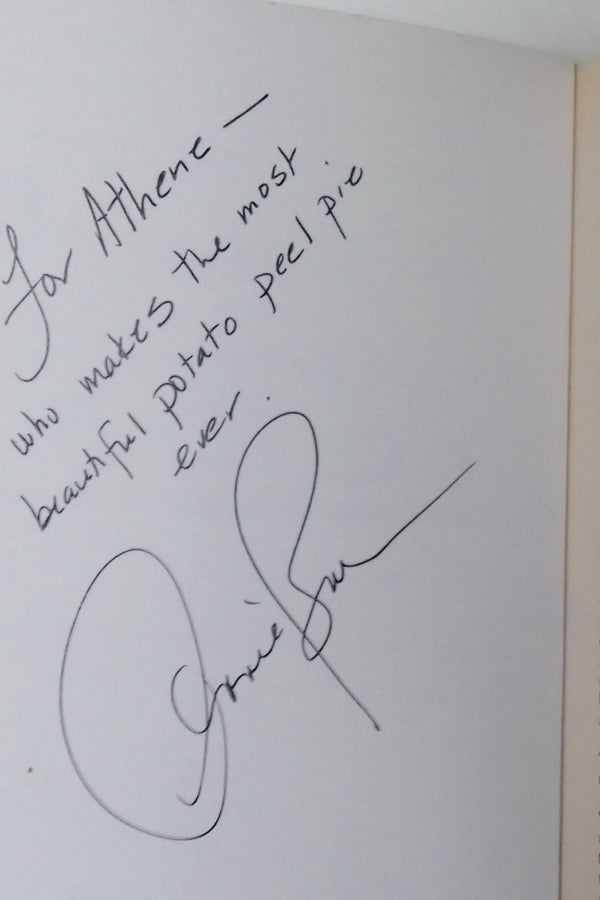 For Athene —
who makes the most
beautiful potato peel pie
ever.
Annie Barrows